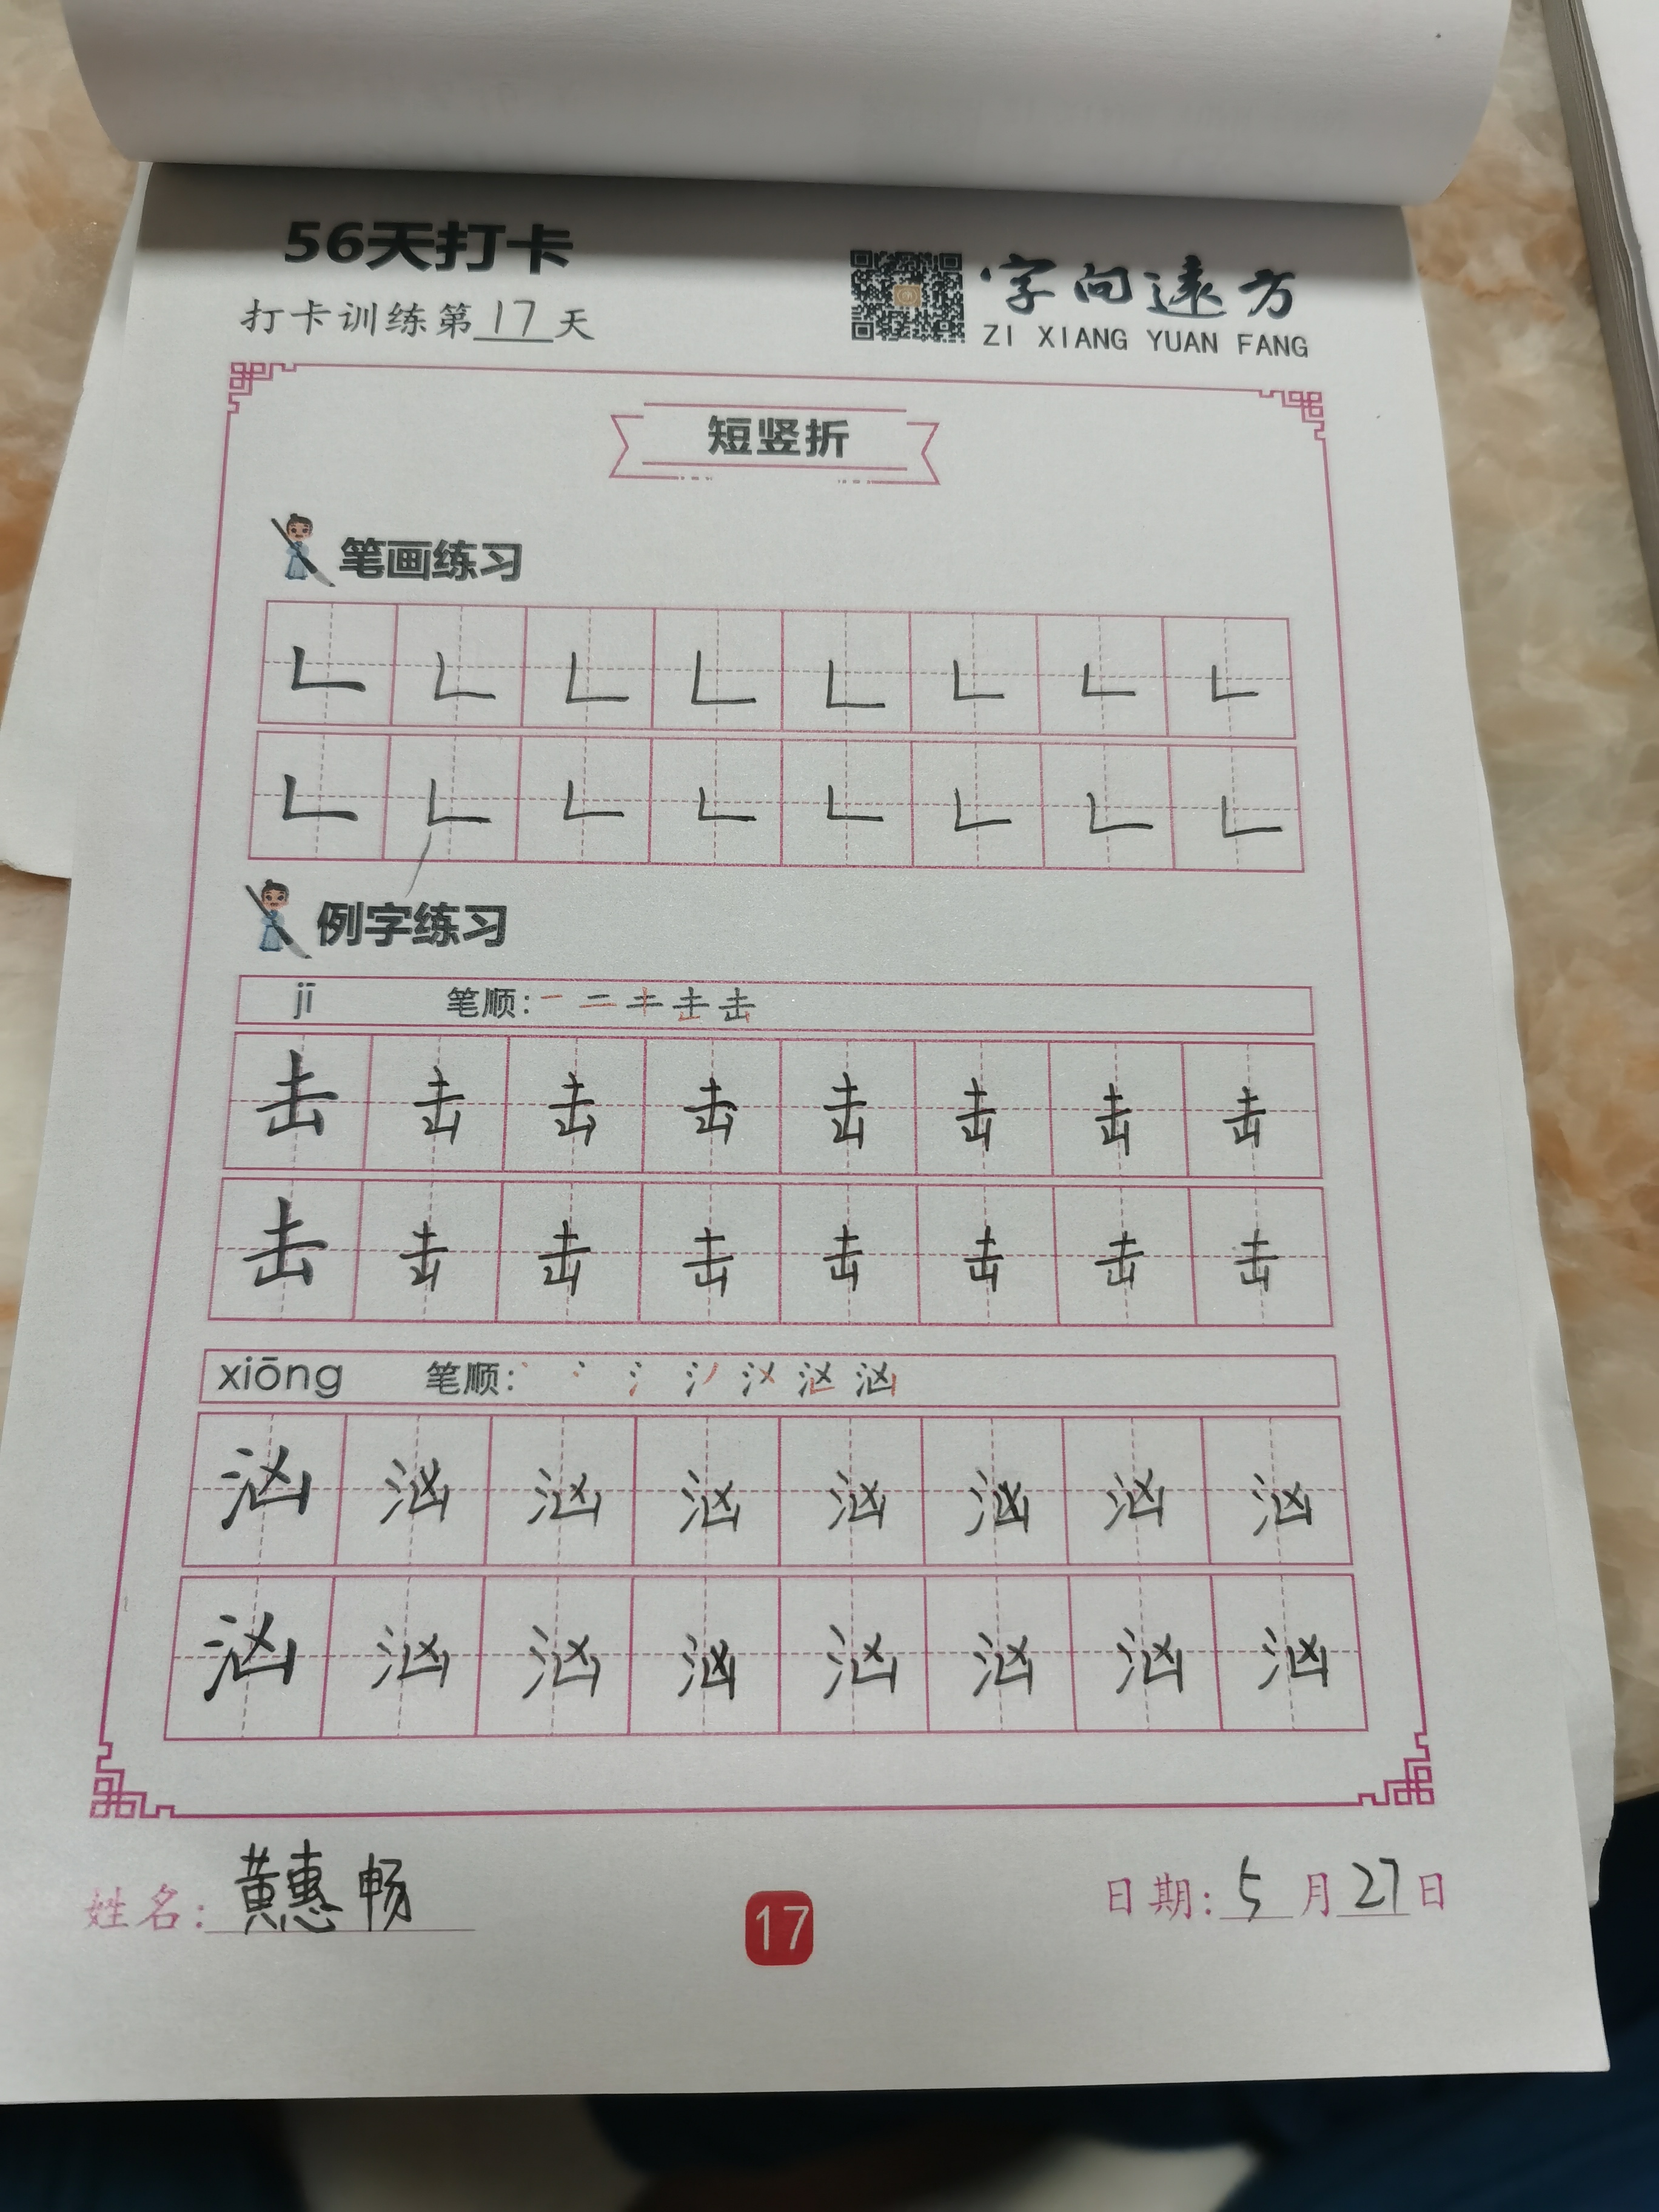 56天打卡
打卡训练第17天
字向远方
ZI XIANG YUAN FANG
短竖折
笔画练习
𠃊 𠃊 𠃊 𠃊 𠃊 𠃊 𠃊 𠃊
𠃊 𠃊 𠃊 𠃊 𠃊 𠃊 𠃊 𠃊
例字练习
jī 笔顺:
击 击 击 击 击 击 击 击
击 击 击 击 击 击 击 击
xiōng 笔顺:
汹 汹 汹 汹 汹 汹 汹 汹
汹 汹 汹 汹 汹 汹 汹 汹
姓名:黄惠畅
17
日期:5月27日